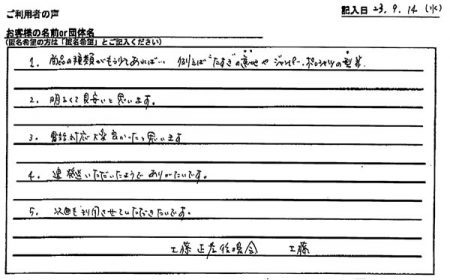 ご利用者の声
記入日 23.9.14 (水)
お客様の名前or団体名
(匿名希望の方は「匿名希望」とご記入ください)
1. 商品の種類がもう少しあれば… 例えば
2. 明るくて見安いと思います。
3. 電話対応大変良かったと思います
4. 速 発送いただいたようでありがたいです。
5. 次回も利用させていただきたいです。
工藤